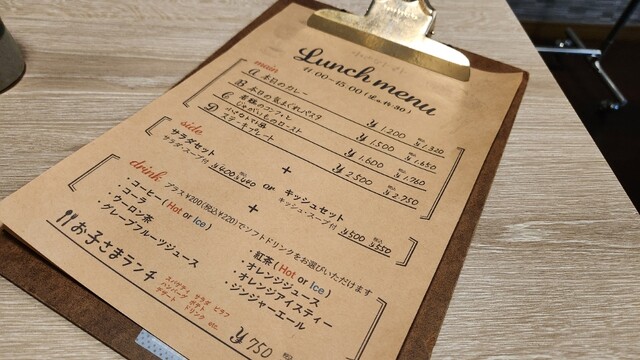 Lunch menu
11:00-15:00 (lo.14:30)
main
A 本日のカレー ¥1,200 税込 ¥1,320
B 本日の気まぐれパスタ ¥1,500 税込 ¥1,650
C ¥1,600 税込 ¥1,760
じゃがいものロースト
D ステーキプレート ¥2,500 税込 ¥2,750
+
side
サラダセット
サラダ・スープ付 ¥400 税込 ¥440
or
キッシュセット
キッシュ・スープ付 ¥500 税込 ¥550
+
drink
プラス¥200(税込¥220)でソフトドリンクをお選びいただけます
・コーヒー(Hot or Ice)
・コーラ
・ウーロン茶
・グレープフルーツジュース
・紅茶(Hot or Ice)
・オレンジジュース
・オレンジアイスティー
・ジンジャーエール
お子さまランチ
スパゲティ サラダ ピラフ
ハンバーグ ポテト
デザート ドリンク
etc.
¥750 税込